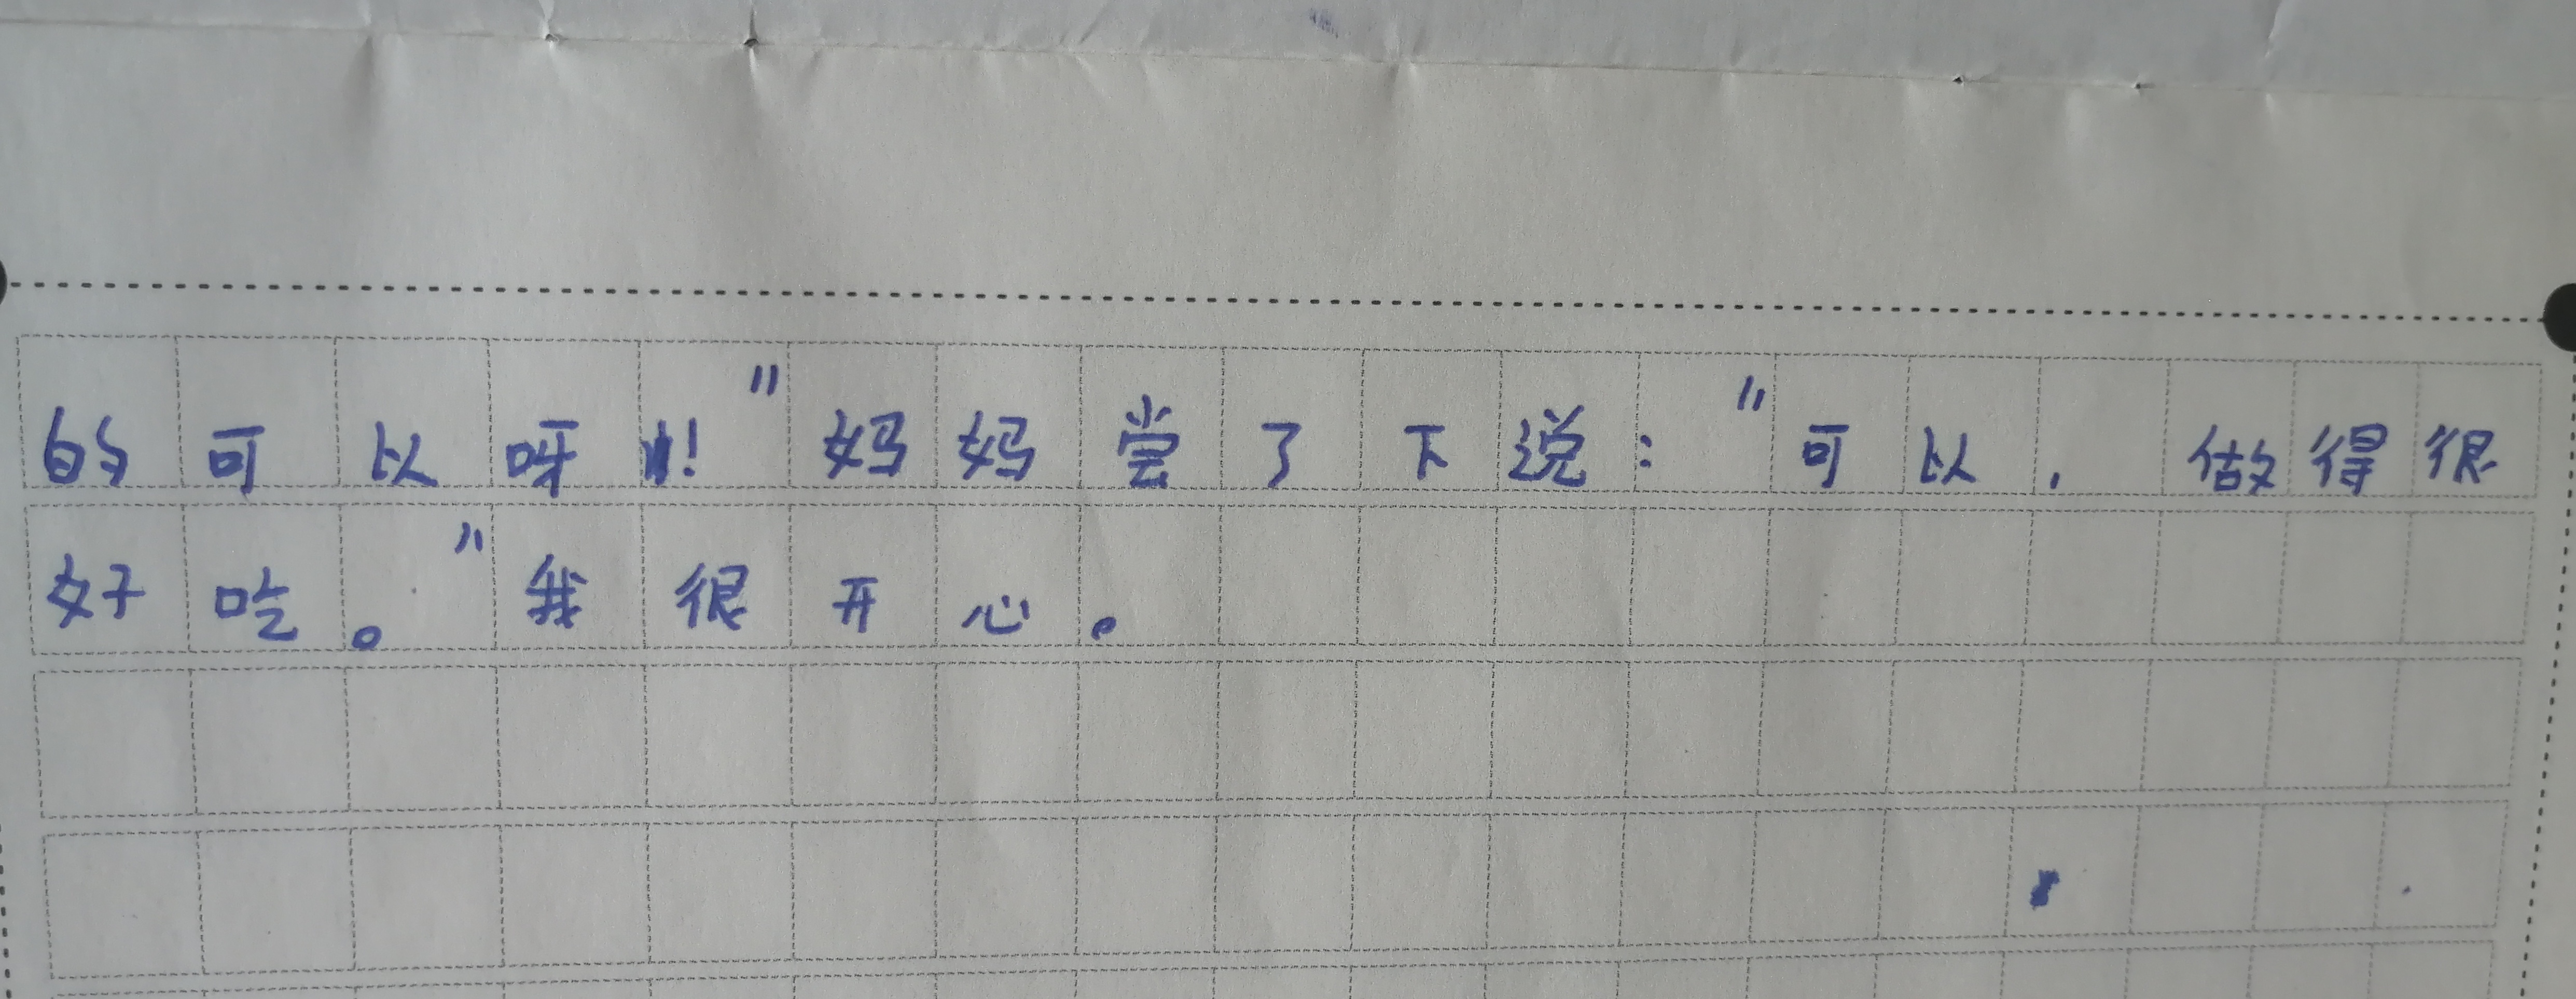 的可以呀！”妈妈尝了下说：“可以，做得很
好吃。”我很开心。